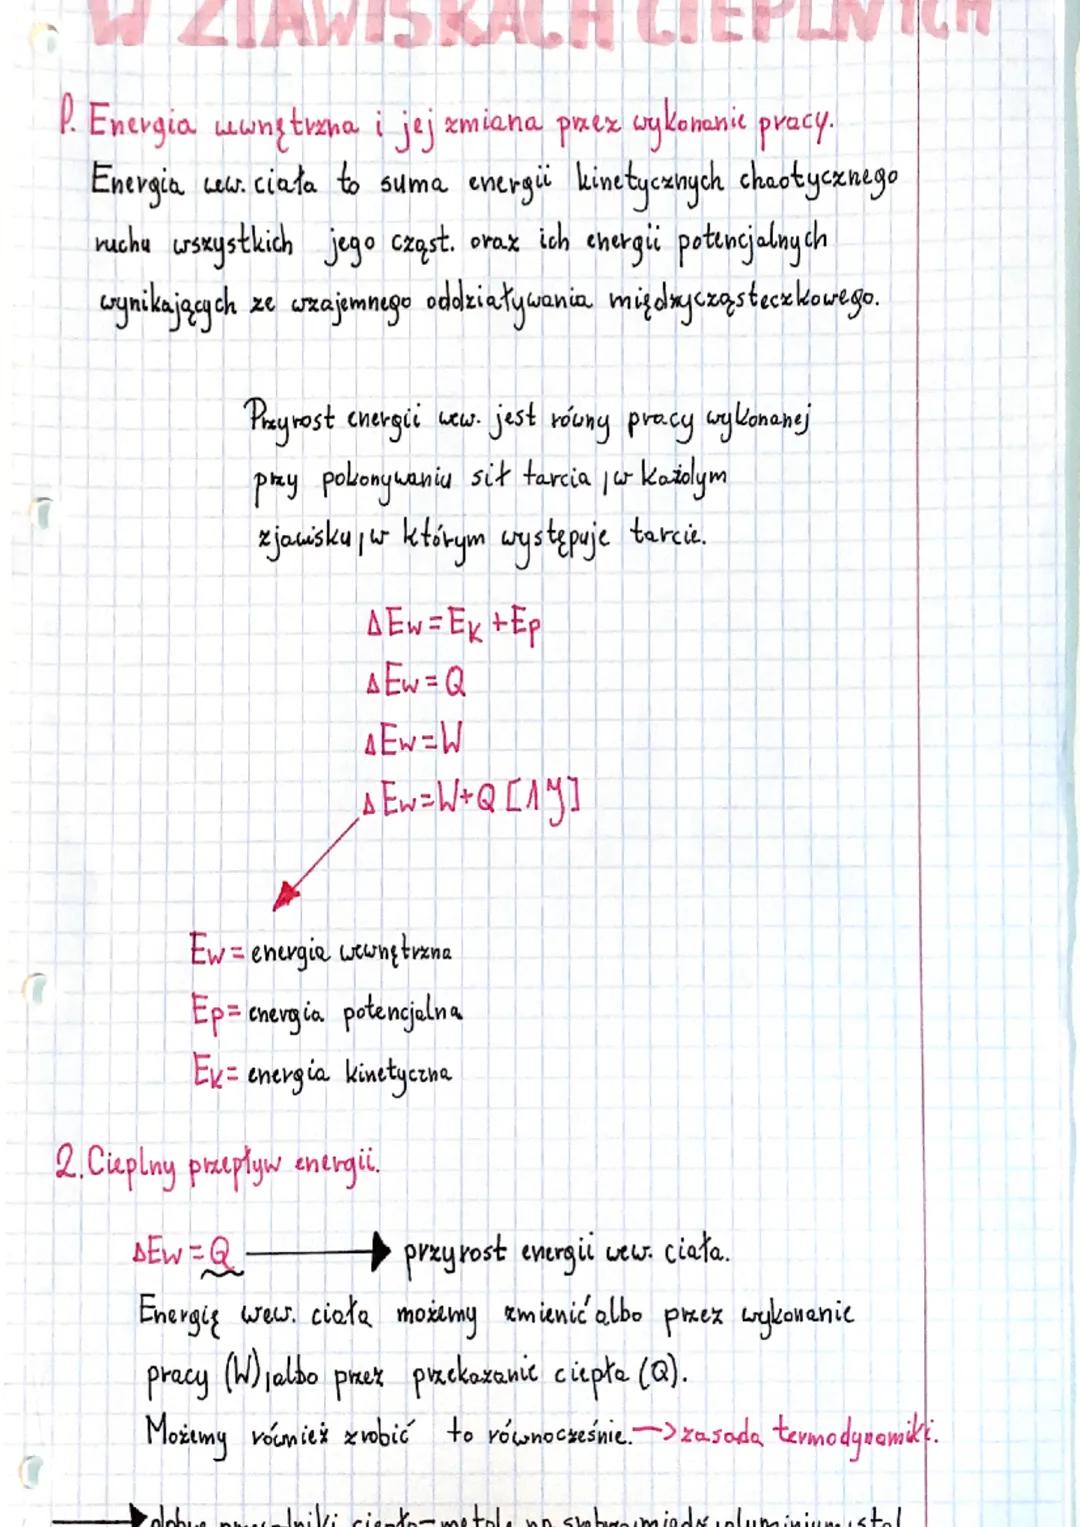 W ZJAWISKACH CIEPLNYCH
1. Energia wewnętrzna i jej zmiana przez wykonanie pracy.
Energia wew. ciała to suma energii kinetycznych chaotycznego
ruchu wszystkich jego cząst. oraz ich energii potencjalnych
wynikających ze wzajemnego oddziaływania międzycząsteczkowego.
Przyrost energii wew. jest równy pracy wykonanej
przy pokonywaniu sił tarcia, w każdym
zjawisku, w którym występuje tarcie.
ΔEw = Ek + Ep
ΔEw = Q
ΔEw = W
ΔEw = W + Q [1J]
Ew = energia wewnętrzna
Ep = energia potencjalna
Ek = energia kinetyczna
2. Cieplny przepływ energii.
ΔEw = Q → przyrost energii wew. ciała.
Energię wew. ciała możemy zmienić albo przez wykonanie
pracy (W), albo przez przekazanie ciepła (Q).
Możemy również zrobić to równocześnie. → zasada termodynamiki.
→ dobre przewodniki ciepła - metale np. srebro, miedź, aluminium, stal